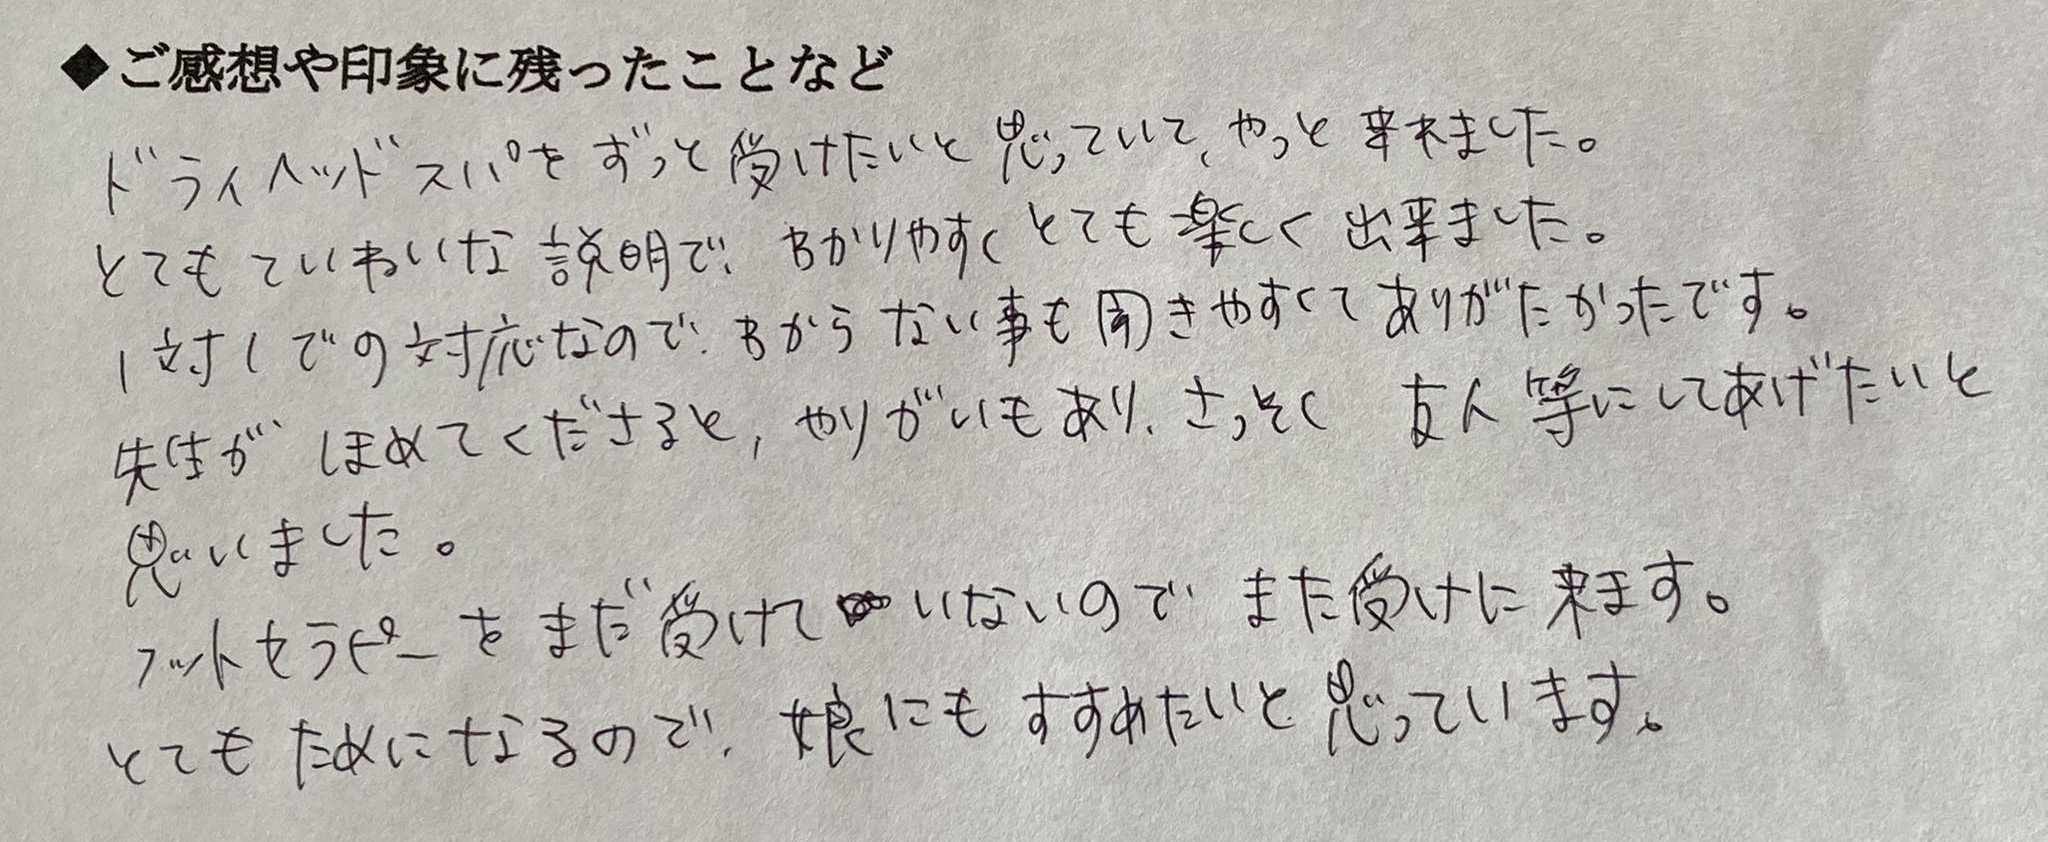 ◆ご感想や印象に残ったことなど
ドライヘッドスパをずっと受けたいと思っていて、やっと来れました。
とてもていねいな説明で、わかりやすくとても楽しく出来ました。
1対1での対応なので、わからない事も聞きやすくてありがたかったです。
先生がほめてくださると、やりがいもあり、さっそく友人等にしてあげたいと
思いました。
フットセラピーをまだ受けていないのでまた受けに来ます。
とてもためになるので、娘にもすすめたいと思っています。